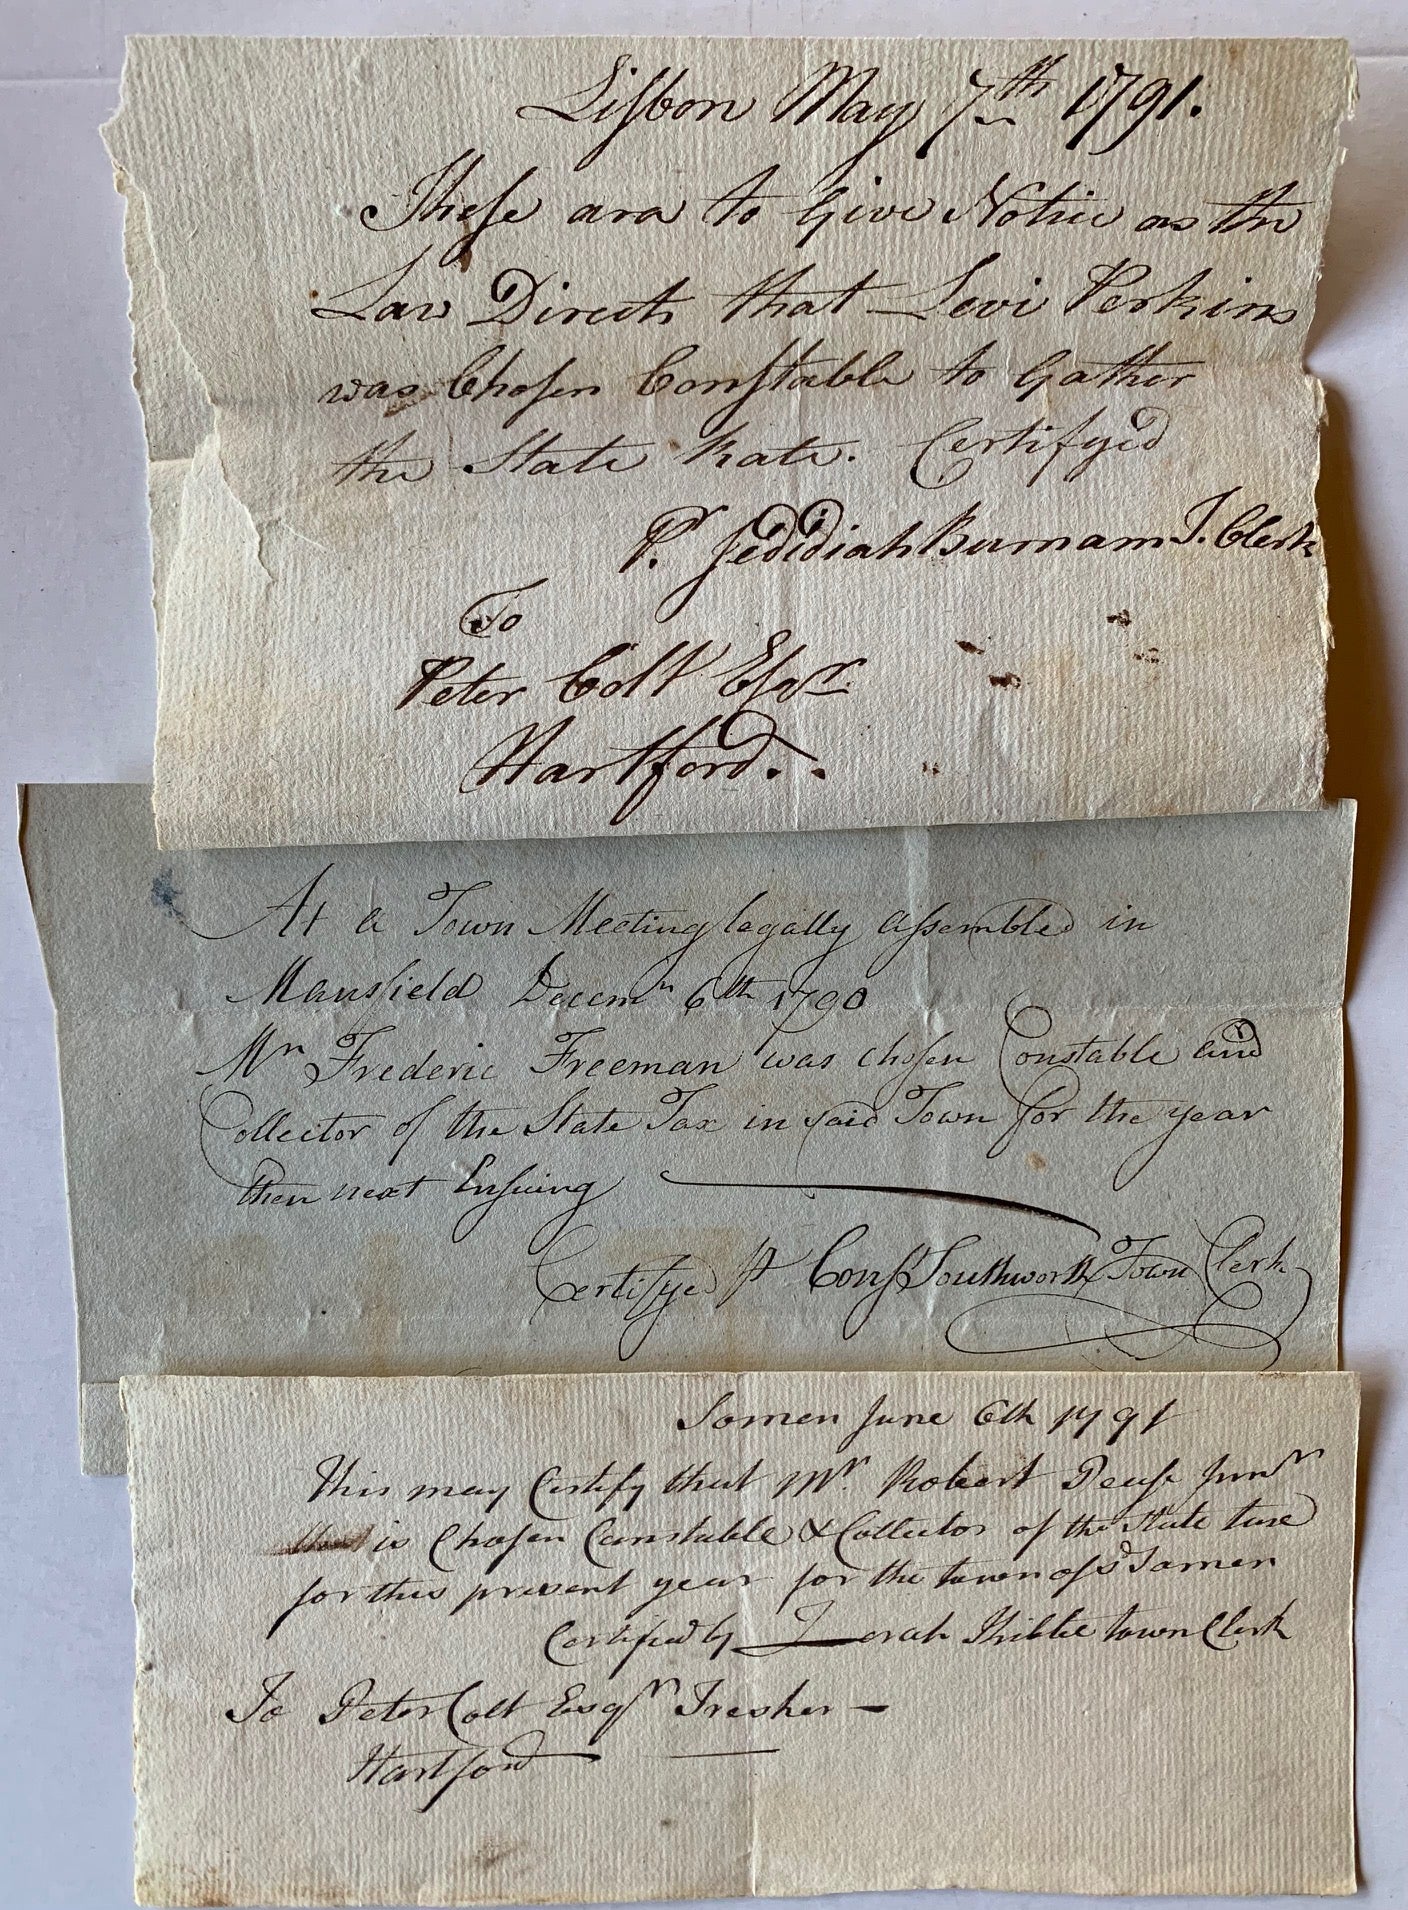 Lisbon May 7th 1791.
These are to Give Notice as the
Law Directs that Levi Perkins
was Chosen Constable to Gather
the State Rate. Certifyed
Pr. Jedidiah Burnam T. Clerk
To
Peter Colt Esqr.
Hartford.
At a Town Meeting legally assembled in
Mansfield Decemr 6th 1790
Mr Frederic Freeman was chosen Constable and
Collector of the State Tax in said Town for the year
then next Ensuing
Certifyed Pr Const Southworth Town Clerk
Somer June 6th 1791
this may Certify that Mr. Robert Pease Junr
is Chosen Constable & Collector of the State taxe
for this present year for the town of sd Somer
Certified by town Clerk
To Peter Colt Esqr Tresher
Hartford